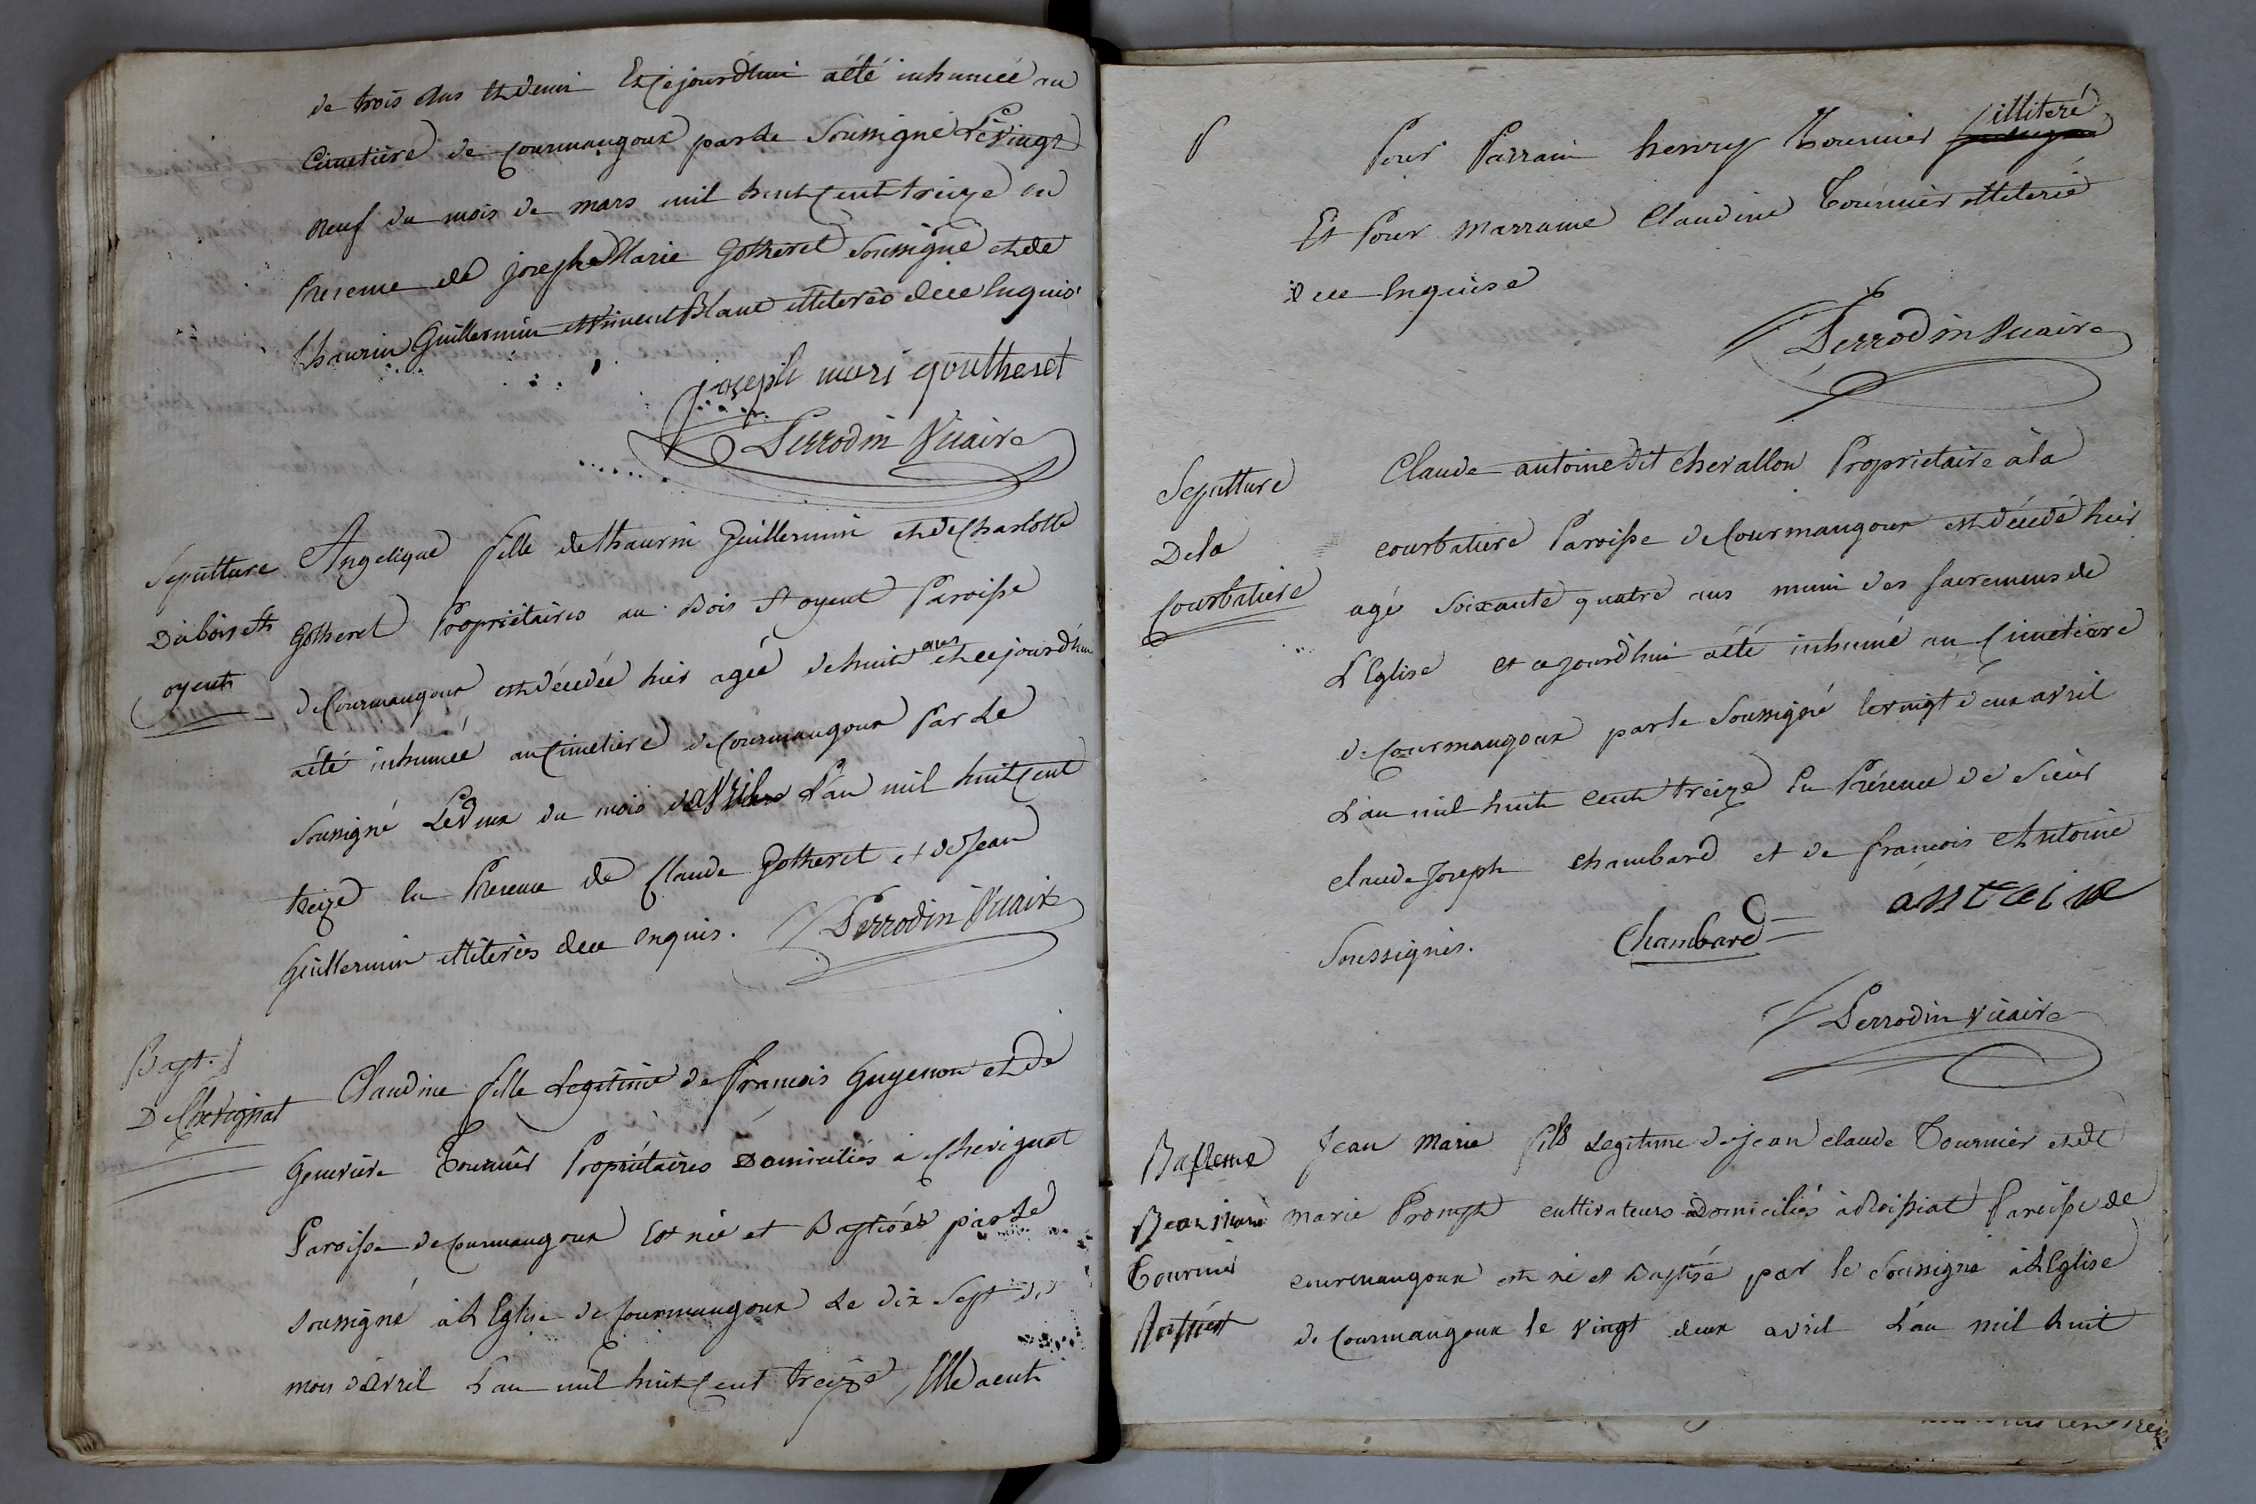 de trois ans et demi Et cejourd'hui a été inhumée au
Cimetière de Courmangoux par le Soussigné Le vingt
neuf du mois de mars mil huit cent treize en
Presence de joseph Marie Gotheret Soussigné et de
Thaurin Guillermin et Vincent Blanc illiterés de ce Enquis.
joseph mari goutheret
Perrodin Vicaire
Sepulture
Du bois st
oyent
Angelique fille de Thaurin Guillermin et de Charlotte
Gotheret Propriétaires au Bois St oyent Paroisse
de Courmangoux est décédée hier agée de huit ans et cejourd'hui
a été inhumée au Cimetiere de Courmangoux Par Le
Soussigné Le deux du mois d'avril L'an mil huit cent
treize En Presence de Claude Gotheret et de Jean
Guillermin illiterés de ce enquis. Perrodin Vicaire
Bapt.
De Chevignat
Claudine fille Legitime de François Guyenon et de
Genevieve Tournier Propriétaires Domiciliés à Chevignat
Paroisse de Courmangoux Est née et Baptisée par Le
Soussigné à L'Eglise de Courmangoux Le dix Sept du
mois d'avril L'an mil huit cent treize, Elle a eut
P
Pour Parrain henry Tournier illiteré
Et Pour Marraine Claudine Tournier illiterée
de ce Enquise
Perrodin Vicaire
Sepulture
De la
Courbatiere
Claude antoine dit chevallon Proprietaire à la
courbatiere Paroisse de Courmangoux est décédé hier
agé Soixante quatre ans muni des Sacremens de
L'Eglise et cejourd'hui a été inhumé au Cimetiere
de Courmangoux par le Soussigné le vingt deux avril
L'an mil huit cent treize En Présence de Sieur
Claude Joseph Chambard et de françois Antoine
Soussignés. Chambard antoine
Perrodin vicaire
Bapteme
Jean Marie
Tournier
Jean Marie fils Legitime de jean claude Tournier et de
Marie Prompt cultivateurs Domiciliés à Roissiat Paroisse de
courmangoux est né et Baptisé par le Soussigné à L'Eglise
de Courmangoux le vingt deux avril L'an mil huit